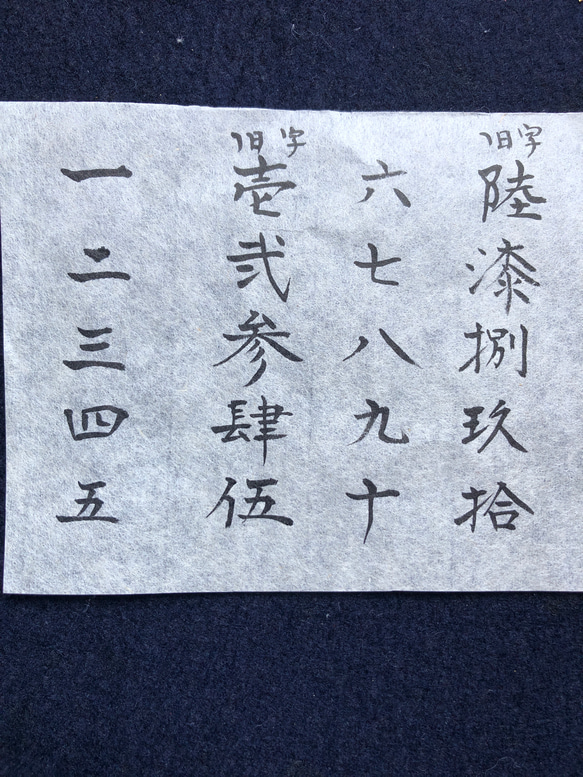 一
二
三
四
五
旧字
壱
弐
参
肆
伍
六
七
八
九
十
旧字
陸
漆
捌
玖
拾